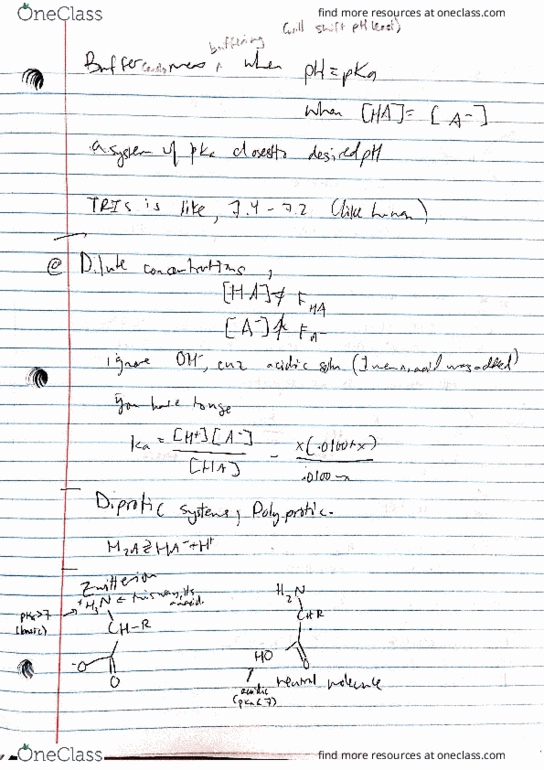 OneClass
find more resources at oneclass.com
(will shift pH least)
buffering
Buffer when pH = pKa
when [HA] = [A⁻]
a system w/ pKa closest to desired pH
TRIS is like, 7.4 - 7.2 (like human)
@ Dilute concentrations,
[HA] ≠ F_HA
[A⁻] ≠ F_A⁻
ignore OH⁻, cuz acidic soln (I mean, acid was added)
You have to use
Ka = [H⁺][A⁻] / [HA] = x(.0100+x) / .0100-x
Diprotic systems, Polyprotic.
H₂A ⇌ HA⁻ + H⁺
Zwitterion
⁺H₃N ← this way, its an acid.
pKa > 7
(basic)
CH-R
⁻O
O
H₂N
CHR
HO
O
acidic
(pKa < 7)
neutral molecule
OneClass
find more resources at oneclass.com